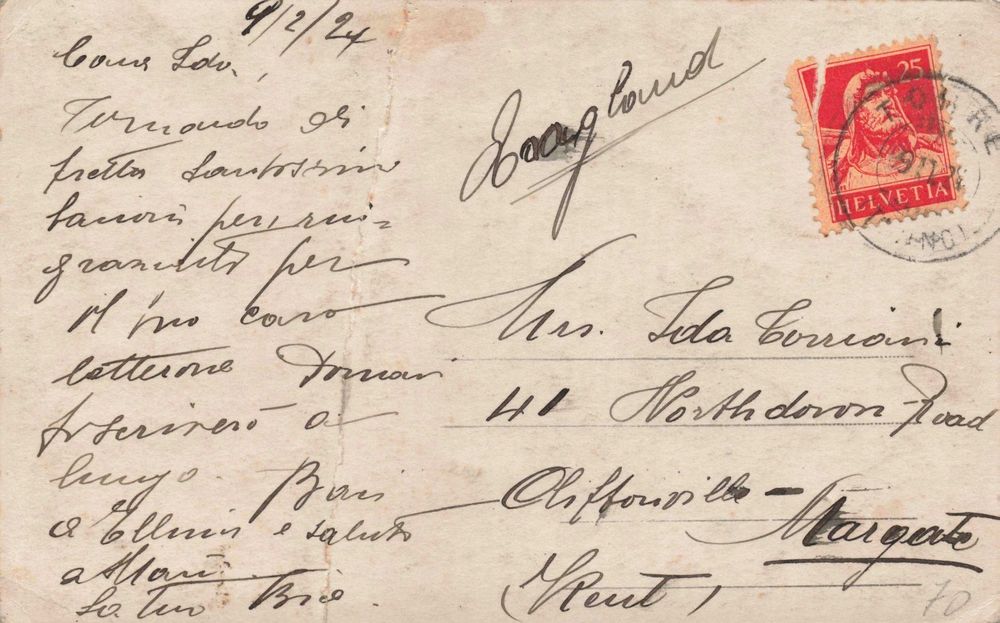 9/2/24
Cara Ida,
Tornando di
fretta tantissimi
per rin-
graziarti per
il tuo caro
letterone Domani
ti scriverò a
lungo. Baci
a e saluti
a
la tua
England
25
HELVETIA
Mrs. Ida Torriani
41 Northdown Road
Cliftonville -
Margate
(Kent)
70